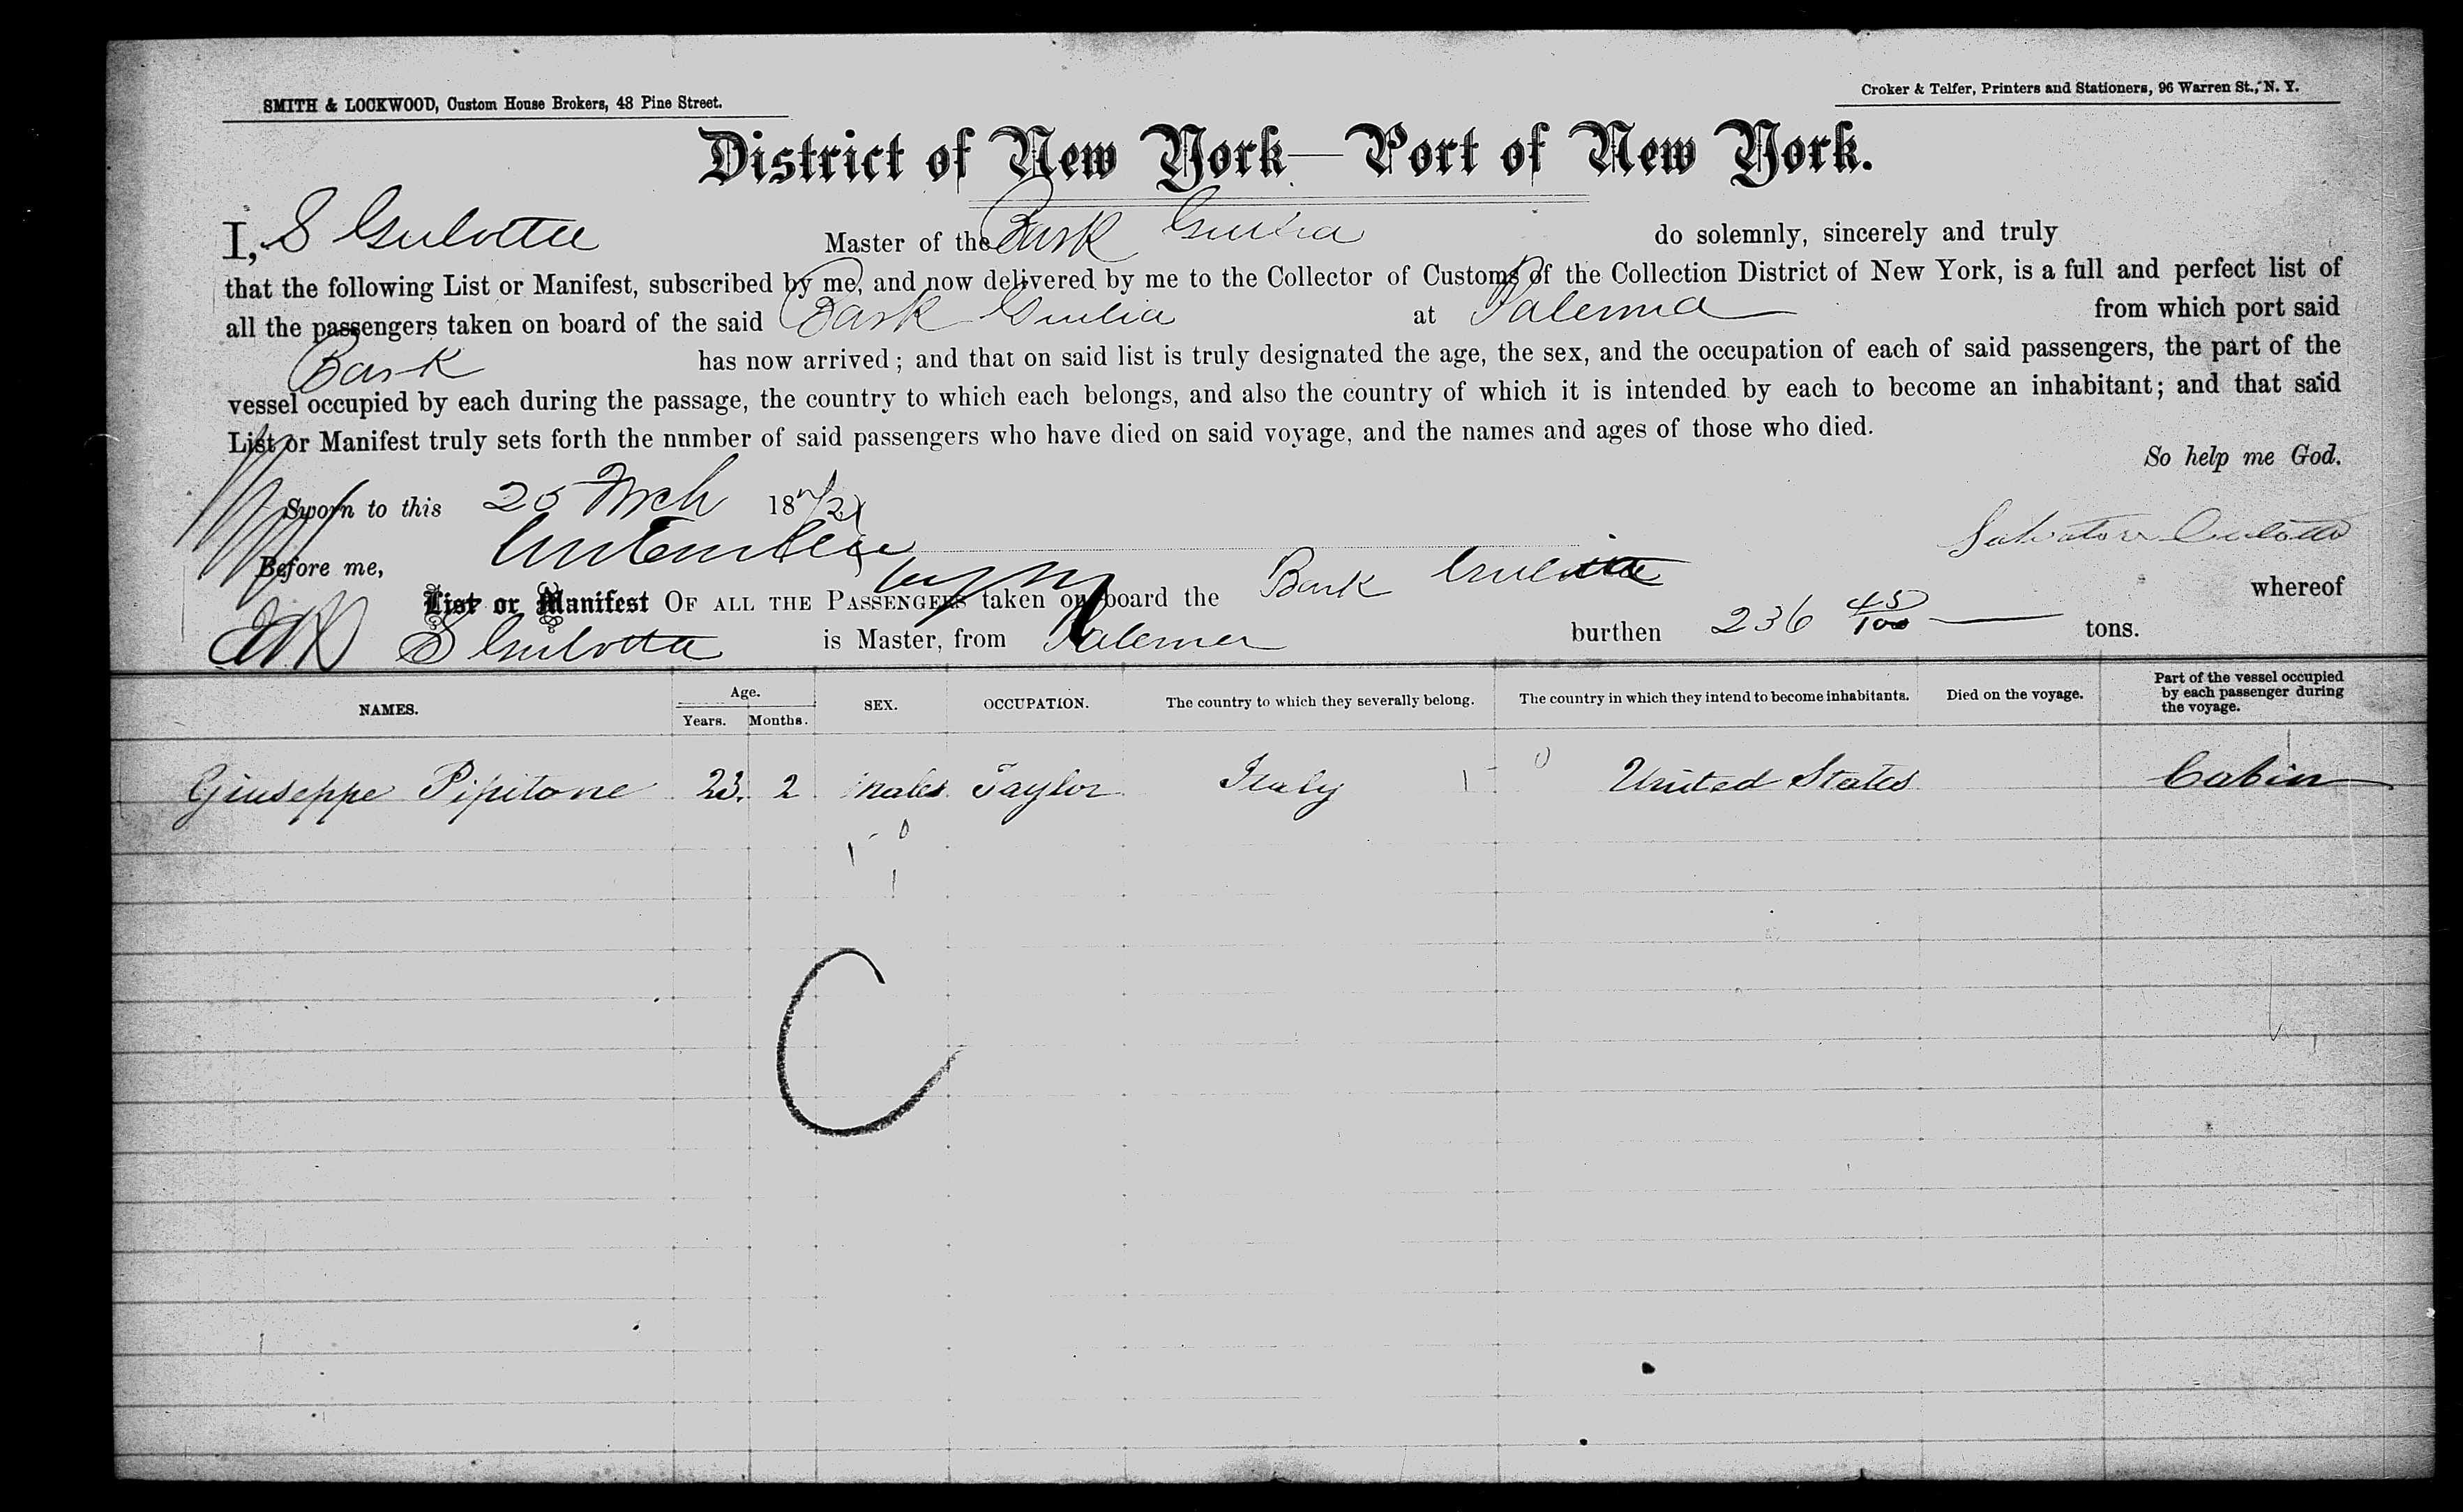 SMITH & LOCKWOOD, Custom House Brokers, 48 Pine Street.
Croker & Telfer, Printers and Stationers, 96 Warren St., N. Y.
District of New York—Port of New York.
I, S Gulotta Master of the Bark Giulia do solemnly, sincerely and truly
that the following List or Manifest, subscribed by me, and now delivered by me to the Collector of Customs of the Collection District of New York, is a full and perfect list of
all the passengers taken on board of the said Bark Giulia at Palermo from which port said
Bark has now arrived; and that on said list is truly designated the age, the sex, and the occupation of each of said passengers, the part of the
vessel occupied by each during the passage, the country to which each belongs, and also the country of which it is intended by each to become an inhabitant; and that said
List or Manifest truly sets forth the number of said passengers who have died on said voyage, and the names and ages of those who died.
So help me God.
Sworn to this 25 Mch 1872
Salvatore Gulotta
Before me,
List or Manifest OF ALL THE PASSENGERS taken on board the Bark whereof
S Gulotta is Master, from Palermo burthen 236 45/100 tons.
NAMES. Age. Years. Months. SEX. OCCUPATION. The country to which they severally belong. The country in which they intend to become inhabitants. Died on the voyage. Part of the vessel occupied by each passenger during the voyage.
Giuseppe Pipitone 23. 2 males Taylor Italy 1 0 United States Cabin
1 0
1
C